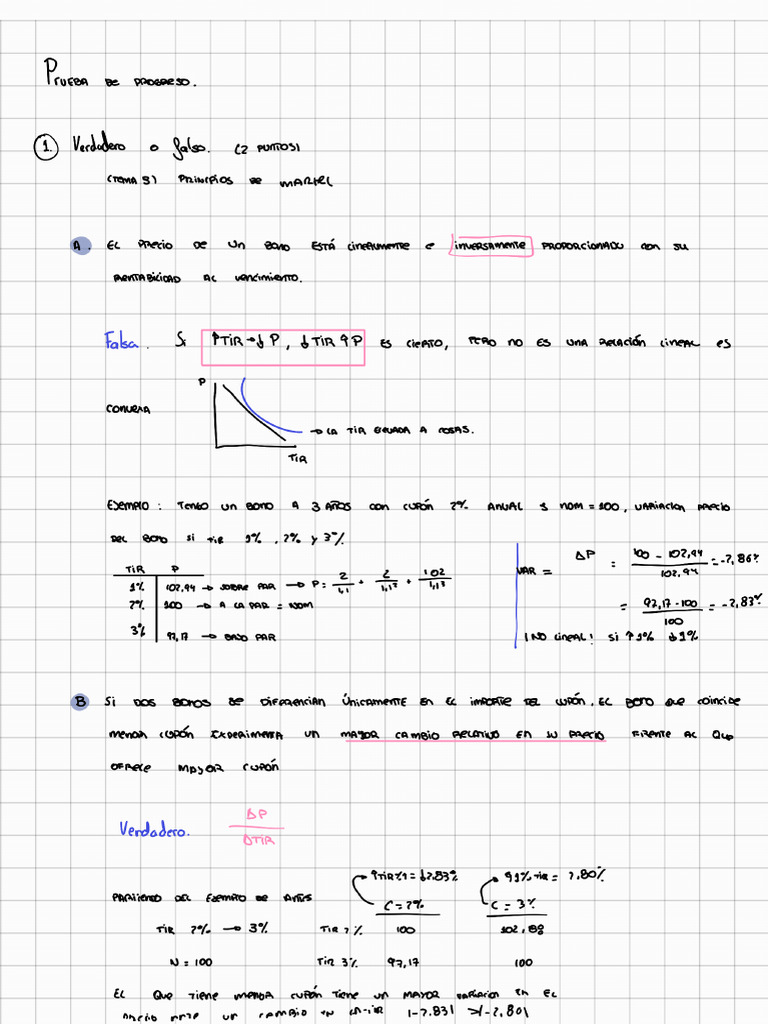 PRUEBA DE PROGRESO.
1. Verdadero o falso. (2 PUNTOS)
(TEMA 3) PRINCIPIOS DE MALKIEL
A. EL PRECIO DE UN BONO ESTÁ LINEALMENTE E INVERSAMENTE PROPORCIONADO CON SU
RENTABILIDAD AL VENCIMIENTO.
Falsa. Si ↑TIR → ↓ P, ↓ TIR ↑ P ES CIERTO, PERO NO ES UNA RELACIÓN LINEAL ES
CONVEXA
P
→ LA TIR ELEVADA A COSAS.
TIR
EJEMPLO : TENGO UN BONO A 3 AÑOS CON CUPÓN 2% ANUAL Y NOM = 100, VARIACION PRECIO
DEL BONO SI TIR 1%, 2% Y 3%
TIR P
1% 102,94 → SOBRE PAR → P = 2/1,1 + 2/1,1² + 102/1,1³
2% 100 → A LA PAR = NOM
3% 97,17 → BAJO PAR
VAR = ΔP = (100 - 102,94)/102,94 = -2,86%
= (97,17 - 100)/100 = -2,83%
¡NO LINEAL! SI ↑1% ↓1%
B SI DOS BONOS SE DIFERENCIAN ÚNICAMENTE EN EL IMPORTE DEL CUPÓN, EL BONO QUE
MENOR CUPÓN EXPERIMENTA UN MAYOR CAMBIO RELATIVO EN SU PRECIO FRENTE AL QUE
OFRECE MAYOR CUPÓN
Verdadero. ΔP/ΔTIR
↑TIR = ↓2.83% ↑1% TIR = 2,80%
PARTIENDO DEL EJEMPLO DE ANTES C = 2% C = 3%
TIR 2% → 3% TIR 2% 100 102,88
N = 100 TIR 3% 97,17 100
EL QUE TIENE MENOR CUPÓN TIENE UN MAYOR VARIACION EN EL
PRECIO ANTE UN CAMBIO EN LA TIR |-2.83| > |-2,80|